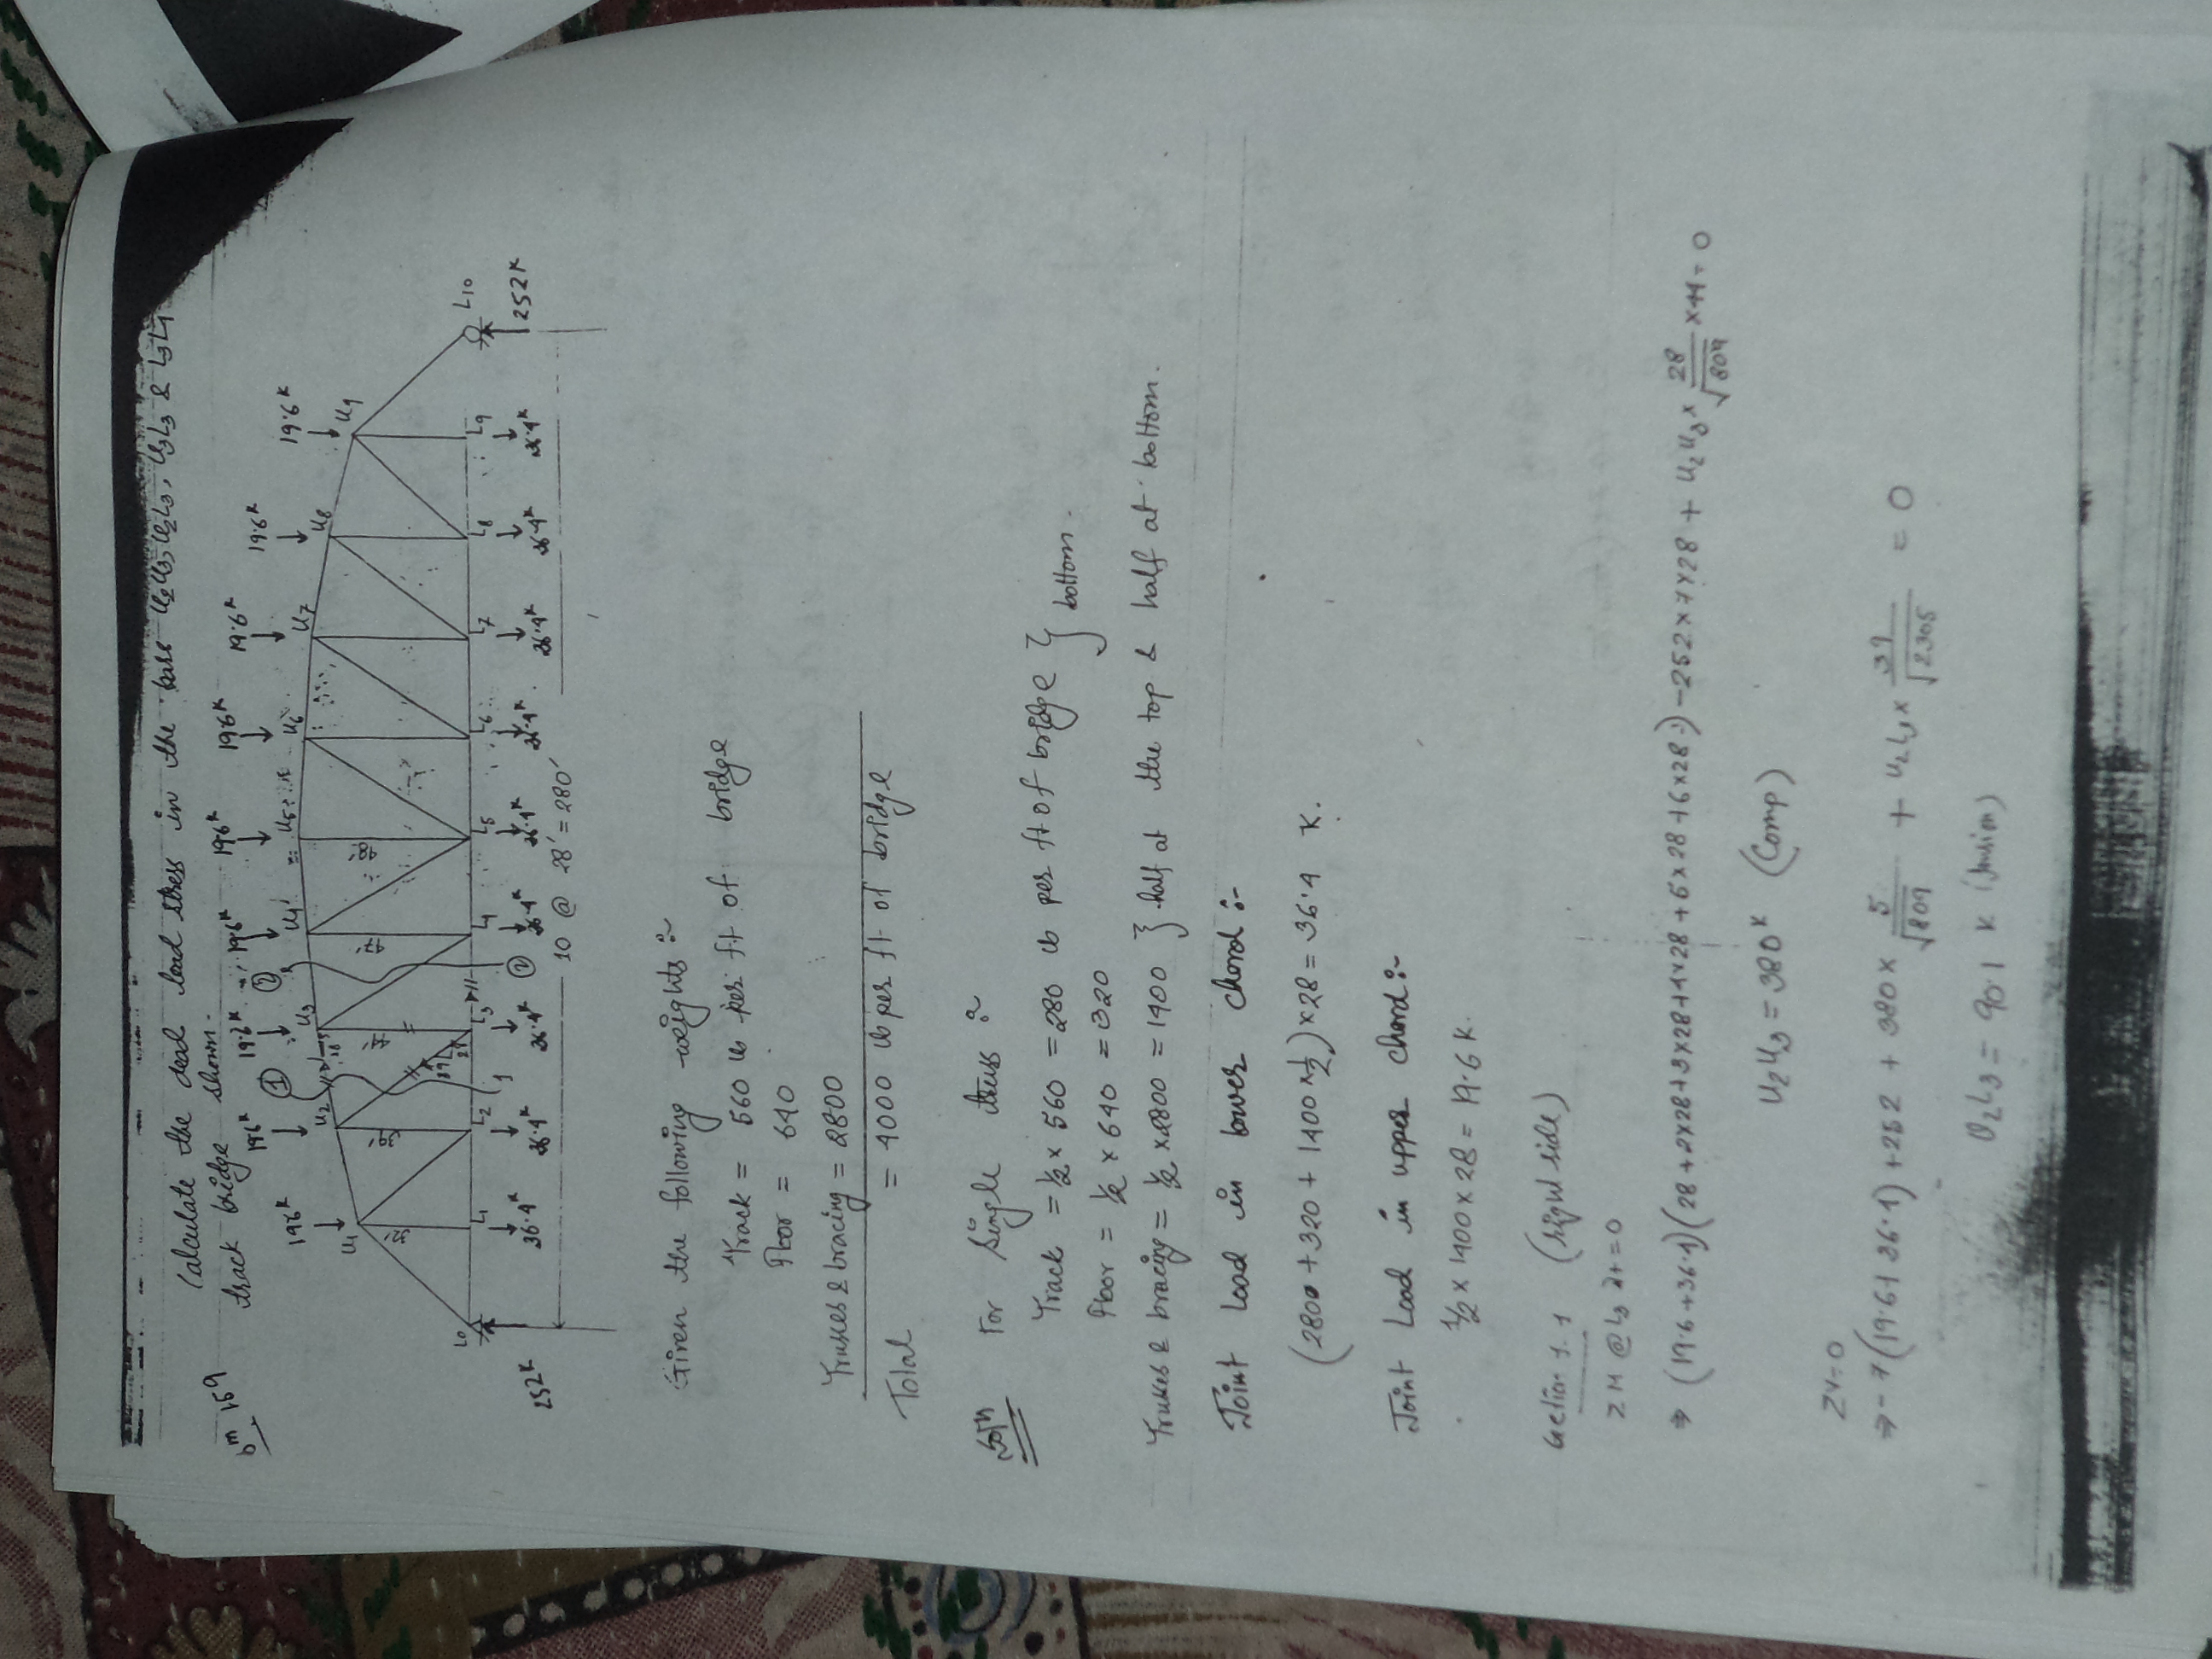 Calculate the dead load stress in the bars U2U3, U2L3, U3L3 & L3L4
bm 159
track bridge shown.
19.6K 19.6K 19.6K 19.6K 19.6K 19.6K 19.6K 19.6K 19.6K
U1 U2 U3 U4 U5 U6 U7 U8 U9
L0 L1 L2 L3 L4 L5 L6 L7 L8 L9 L10
36.4K 36.4K 36.4K 36.4K 36.4K 36.4K 36.4K 36.4K 36.4K
252K 252K
10 @ 28' = 280'
Given the following weights :-
Track = 560 lb per ft of bridge
Floor = 640
Trusses & bracing = 2800
Total = 4000 lb per ft of bridge
Soln For single truss :-
Track = ½ × 560 = 280 lb per ft of bridge } bottom.
Floor = ½ × 640 = 320
Trusses & bracing = ½ × 2800 = 1400 } half at the top & half at bottom.
Joint Load in lower chord :-
(280 + 320 + 1400 × ½) × 28 = 36.4 K.
Joint Load in upper chord :-
½ × 1400 × 28 = 19.6 K.
Section 1.1 (Right side)
ΣM @ L3 = 0
⇒ (19.6+36.4)(28+2×28+3×28+4×28+5×28+6×28) - 252×7×28 + U2U3 × 28/√809 × 44 = 0
U2U3 = 380K (Comp)
ΣV=0
⇒ -7(19.6+36.4) + 252 + 380 × 5/√809 + U2L3 × 39/√2305 = 0
U2L3 = 90.1 K (tension)